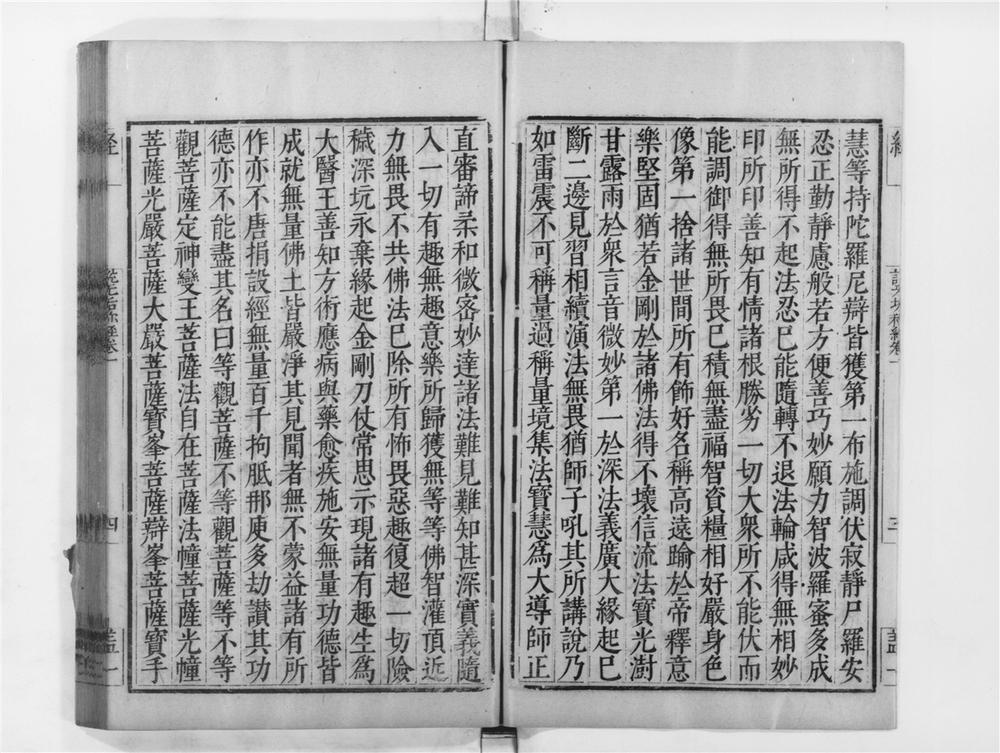 慧等持陀羅尼辯皆獲第一布施調伏寂靜尸羅安
忍正勤靜慮般若方便善巧妙願力智波羅蜜多成
無所得不起法忍已能隨轉不退法輪咸得無相妙
印所印善知有情諸根勝劣一切大衆所不能伏而
能調御得無所畏已積無盡福智資糧相好嚴身色
像第一捨諸世間所有飾好名稱高遠踰於帝釋意
樂堅固猶若金剛於諸佛法得不壞信流法寶光澍
甘露雨於衆言音微妙第一於深法義廣大緣起已
斷二邊見習相續演法無畏猶師子吼其所講說乃
如雷震不可稱量過稱量境集法寶慧爲大導師正
直審諦柔和微密妙達諸法難見難知甚深實義隨
入一切有趣無趣意樂所歸獲無等等佛智灌頂近
力無畏不共佛法已除所有怖畏惡趣復超一切險
穢深坑永棄緣起金剛刀仗常思示現諸有趣生爲
大醫王善知方術應病與藥愈疾施安無量功德皆
成就無量佛土皆嚴淨其見聞者無不蒙益諸有所
作亦不唐捐設經無量百千拘胝那庾多劫讚其功
德亦不能盡其名曰等觀菩薩不等觀菩薩等不等
觀菩薩定神變王菩薩法自在菩薩法幢菩薩光幢
菩薩光嚴菩薩大嚴菩薩寶峯菩薩辯峯菩薩寶手
經
四